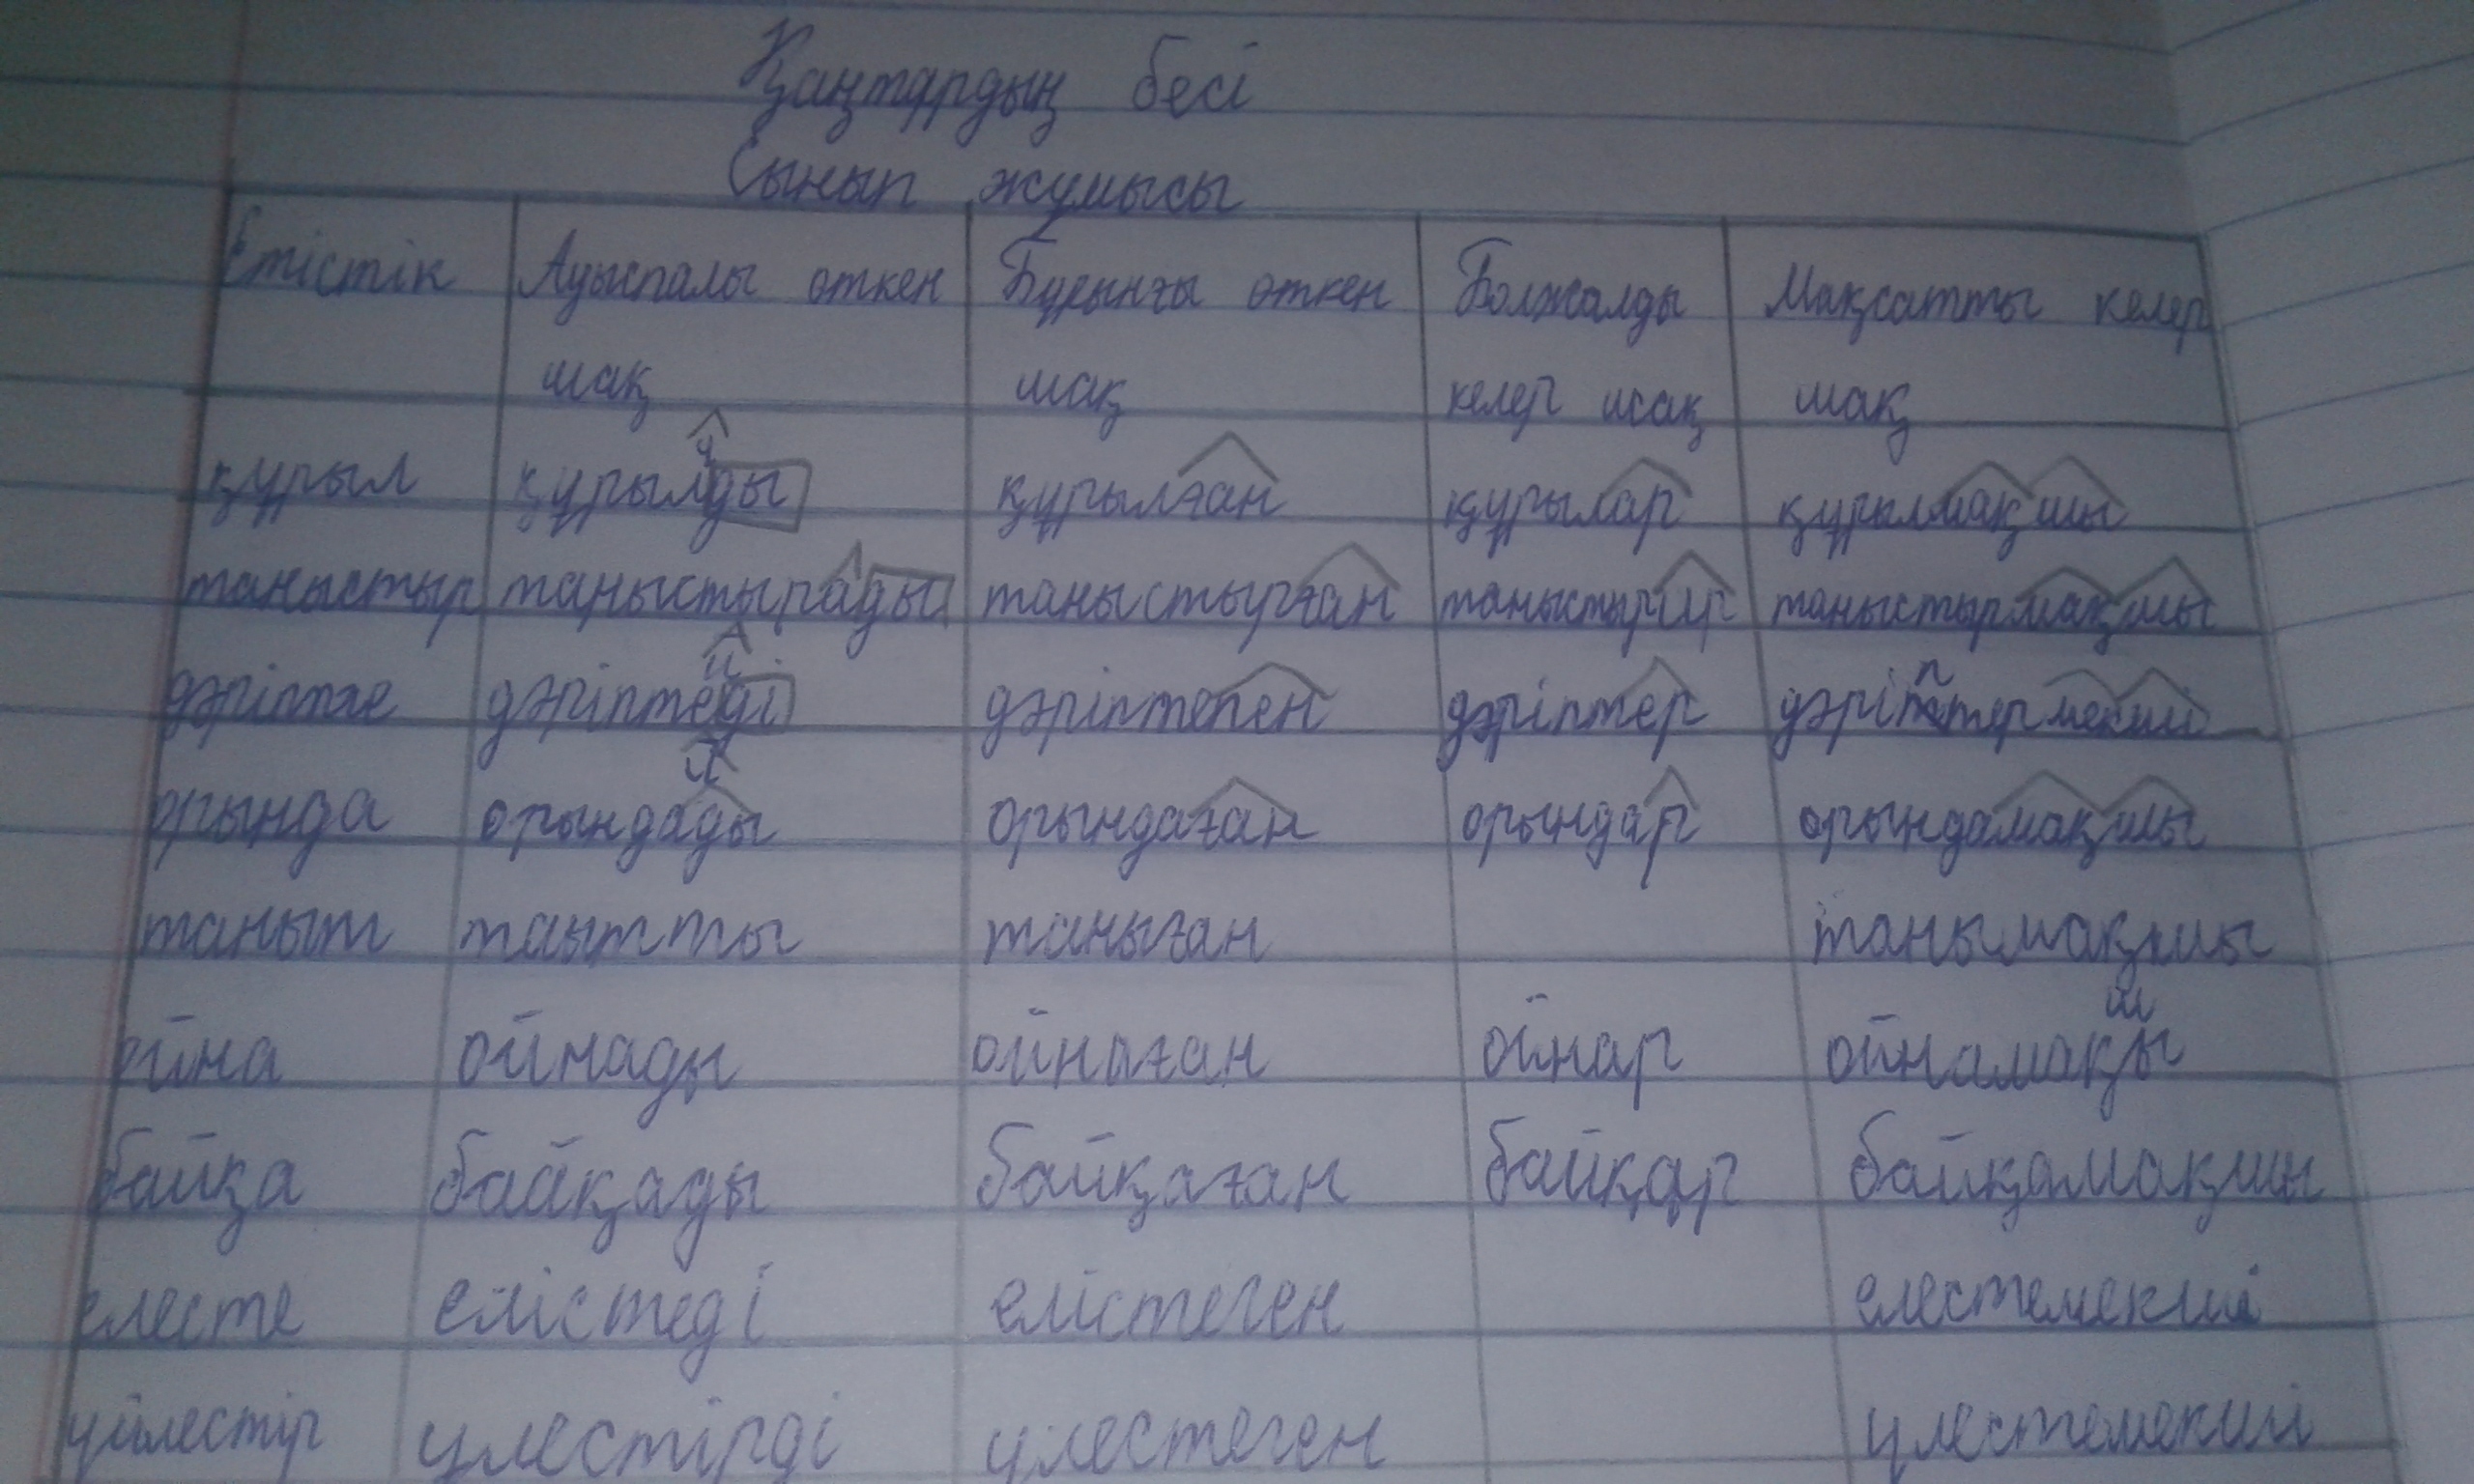 Қаңтардың бесі
Сынып жұмысы
Етістік Ауыспалы өткен Бұрынғы өткен Болжалды Мақсатты келер
шақ шақ келер шақ шақ
құрыл құрылды құрылған құрылар құрылмақшы
таныстыр таныстырады таныстырған таныстырар таныстырмақшы
дәріпте дәріптейді дәріптеген дәріптер дәріптермекші
орында орындайды орындаған орындар орындамақшы
таныт таытты таныған танымақшы
ойна ойнады ойнаған ойнар ойнамақшы
байқа байқады байқаған байқар байқамақшы
елесте елістеді елістеген елестемекші
үйлестір үлестірді үлестеген үлестемекші